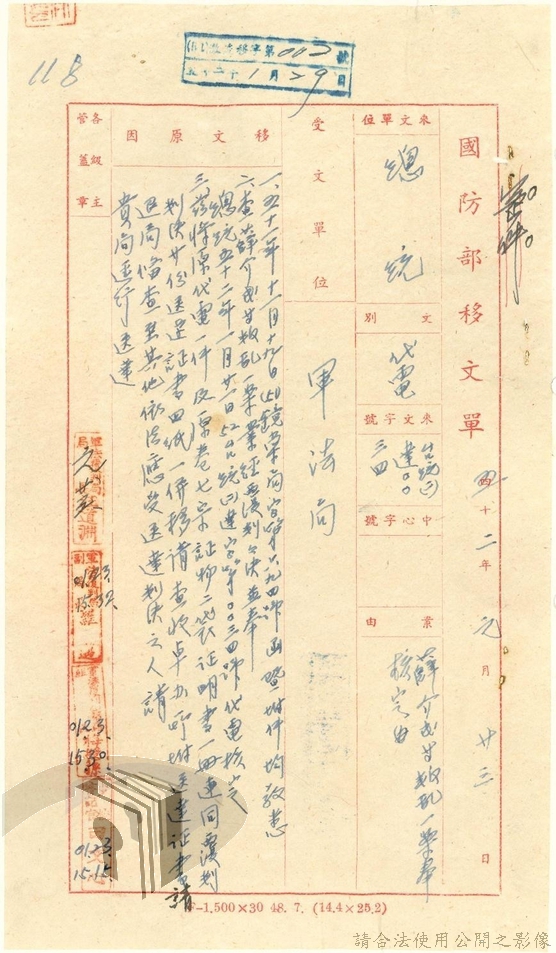 118
(52)
字第002號
五十二年1月29日
國防部移文單
五十二年元月廿三日
來文單位
總統
文別
代電
來文字號
台統(二)達00三四
中心字號
案由
薛介民等叛亂一案奉核定由
受文單位
軍法局
移文原因
一、五十一年十一月十九日(50)鏡業局字第六九四號函暨附件均敬悉
二、查薛介民等叛亂一案業經覆判公決並奉
總統五十二年一月廿一日(52)台統(二)達字第00三四號代電核定
三、茲檢原代電一件及原卷七宗證物二袋証明書一冊連同覆判
判決廿份送達証書四紙一併移請查收卓辦所附送達証書請
退局備查至其他依法應受送達判決之人請
貴局逕行送達
各級主管蓋章
0123
1530
0123
1515
F-1,500×30 48. 7. (14.4×25.2)
請合法使用公開之影像